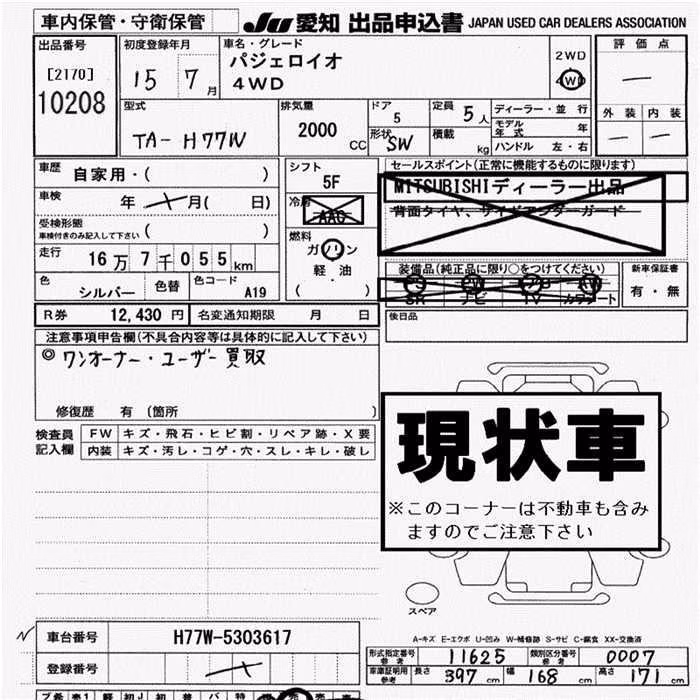 車内保管・守衛保管
JU 愛知 出品申込書 JAPAN USED CAR DEALERS ASSOCIATION
出品番号
[2170]
10208
初度登録年月
15 7月
車名・グレード
パジェロイオ
4WD
2WD
4WD
評価点
—
外装 内装
— —
型式
TA-H77W
排気量
2000 CC
ドア
5
形状 SW
定員
5人
積載 kg
ディーラー・並行
モデル年式 年
ハンドル 左・右
車歴 自家用・( )
車検 年 月( 日)
受検形態
車検付きのみ記入して下さい ( )
走行 16万7千055km
色 シルバー 色替 色コード A19
シフト
5F
冷房
AAC
燃料
ガソリン
軽・油
( )
セールスポイント(正常に機能するものに限ります)
MITSUBISHIディーラー出品
背面タイヤ、サイドアンダーガード
装備品(純正品に限り○をつけてください)
SR ナビ TV カワシート
新車保証書
有・無
R券 12,430円 名変通知期限 月 日
後日品
注意事項申告欄(不具合内容等は具体的に記入して下さい)
◎ワンオーナー・ユーザー買取
修復歴 有 (箇所 )
検査員記入欄
FW キズ・飛石・ヒビ割・リペア跡・X要
内装 キズ・汚レ・コゲ・穴・スレ・キレ・破レ
現状車
※このコーナーは不動車も含み
ますのでご注意下さい
スペア
車台番号 H77W-5303617
登録番号
A-キズ E-エクボ U-凹み W-補修跡 S-サビ C-腐食 XX-交換済
形式指定番号 参考 11625 類別区分番号 参考 0007
車庫証明用 参考 長さ 397cm 幅 168cm 高さ 171cm